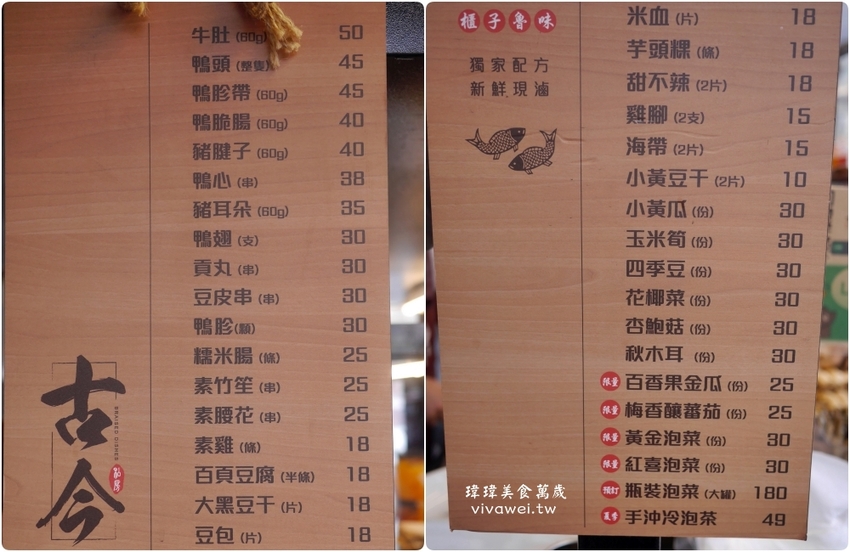 牛肚 (60g) 50
鴨頭 (整隻) 45
鴨胗帶 (60g) 45
鴨脆腸 (60g) 40
豬腱子 (60g) 40
鴨心 (串) 38
豬耳朵 (60g) 35
鴨翅 (支) 30
貢丸 (串) 30
豆皮串 (串) 30
鴨胗 (顆) 30
糯米腸 (條) 25
素竹笙 (串) 25
素腰花 (串) 25
素雞 (條) 18
百頁豆腐 (半條) 18
大黑豆干 (片) 18
豆包 (片) 18
古今
BRAISED DISHES
櫃子魯味
獨家配方
新鮮現滷
米血 (片) 18
芋頭粿 (條) 18
甜不辣 (2片) 18
雞腳 (2支) 15
海帶 (2片) 15
小黃豆干 (2片) 10
小黃瓜 (份) 30
玉米筍 (份) 30
四季豆 (份) 30
花椰菜 (份) 30
杏鮑菇 (份) 30
秋木耳 (份) 30
限量 百香果金瓜 (份) 25
限量 梅香釀蕃茄 (份) 25
限量 黃金泡菜 (份) 30
限量 紅喜泡菜 (份) 30
預訂 瓶裝泡菜 (大罐) 180
夏季 手沖冷泡茶 49
瑋瑋美食萬歲
vivawei.tw